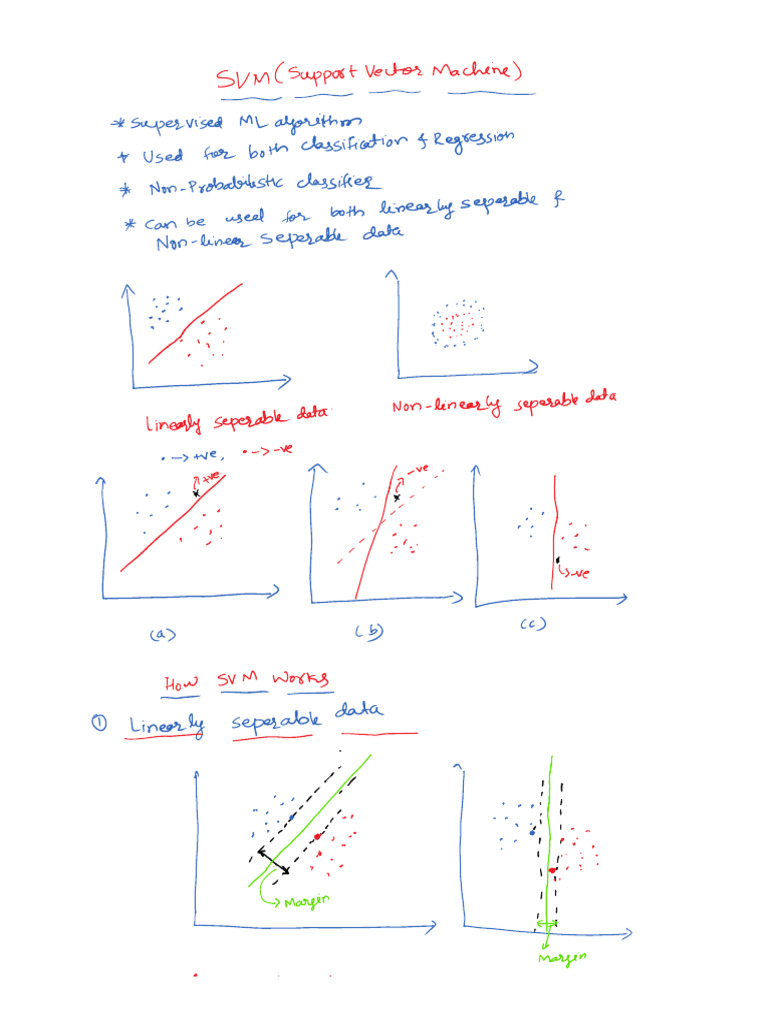 SVM (Support Vector Machine)
* Supervised ML algorithm
* Used for both classification & Regression
* Non-Probabilistic classifier
* Can be used for both linearly seperable &
Non-linear seperable data
Linearly seperable data
Non-linearly seperable data
• → +ve, • → -ve
+ve
-ve
-ve
(a)
(b)
(c)
How SVM Works
① Linearly seperable data
Margin
Margin